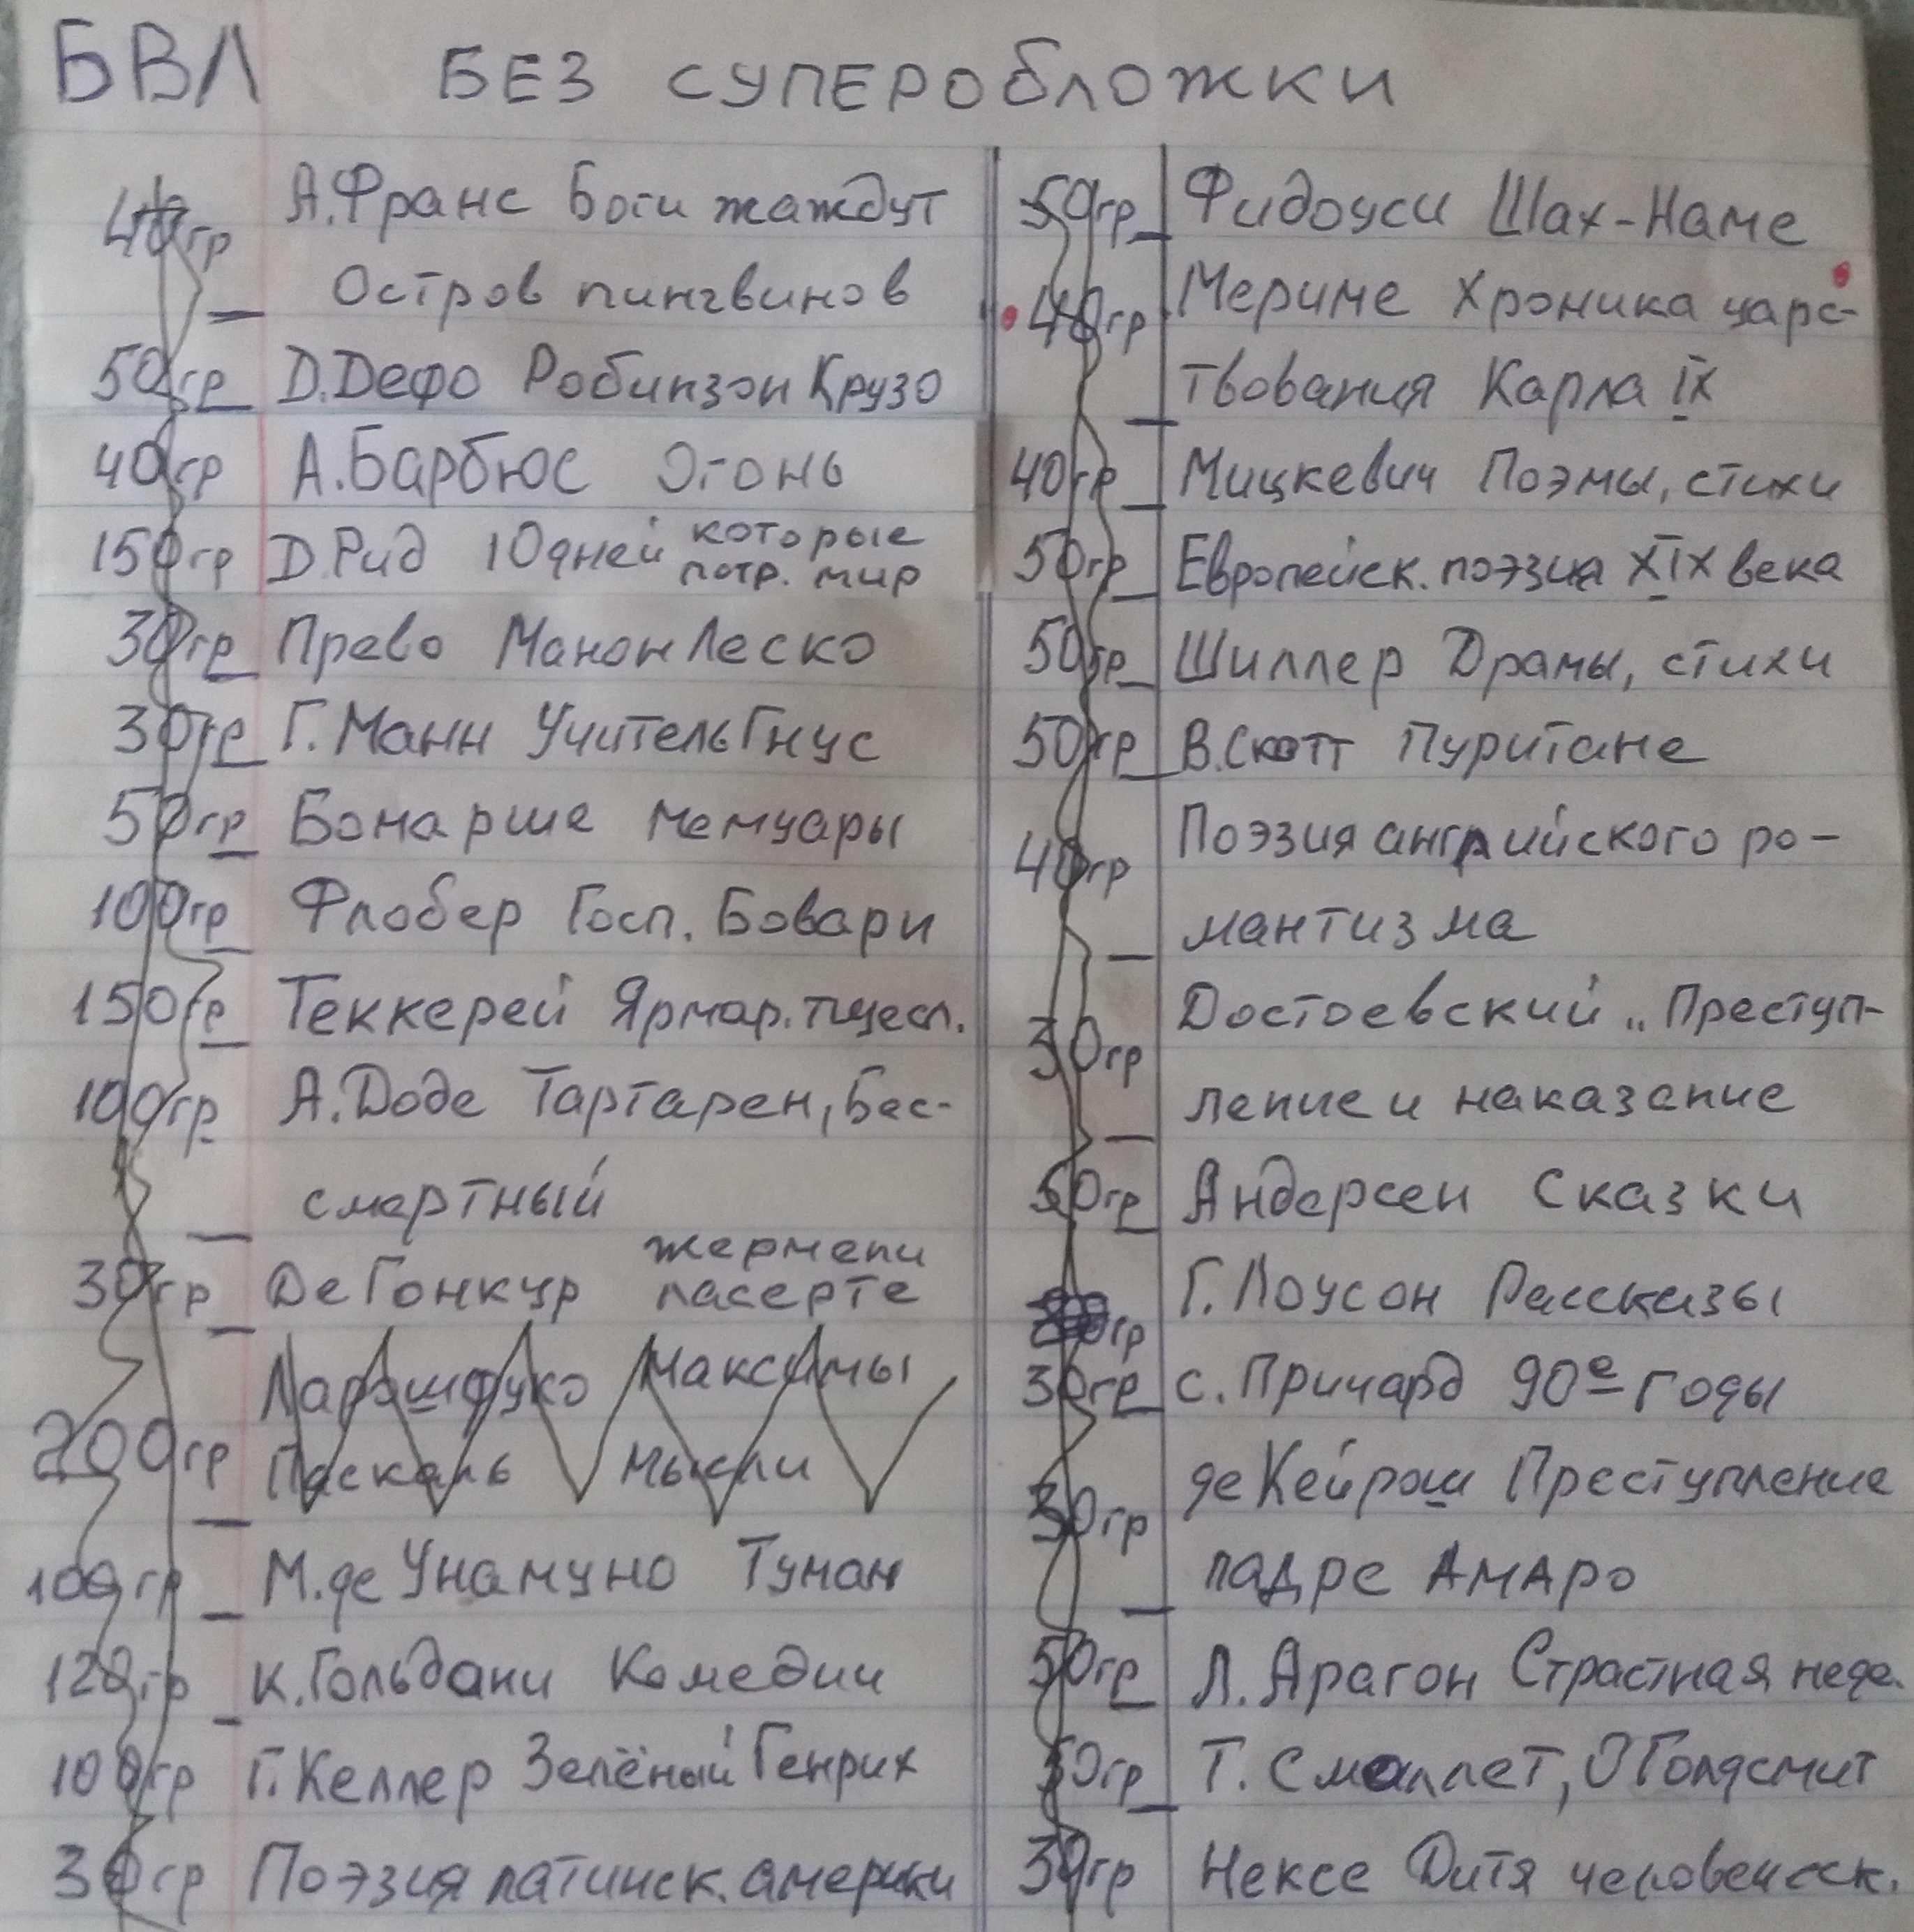 БВЛ БЕЗ СУПЕРОБЛОЖКИ
40гр А.Франс Боги жаждут
Остров пингвинов
50гр Д.Дефо Робинзон Крузо
40гр А.Барбюс Огонь
150гр Д.Рид 10 дней которые
потр. мир
30гр Прево Манон Леско
30гр Г.Манн Учитель Гнус
50гр Бомарше мемуары
100гр Флобер Госп. Бовари
150гр Теккерей Ярмар. тщесл.
100гр А.Доде Тартарен, Бес-
смертный
30гр Де Гонкур жермени
ласерте
Ларошфуко Максимы
200гр Паскаль Мысли
100гр М.де Унамуно Туман
120гр К.Гольдони Комедии
100гр Г.Келлер Зелёный Генрих
30гр Поэзия латинск. америки
50гр Фидоуси Шах-Наме
40гр Мериме Хроника царс-
твования Карла IX
40гр Мицкевич Поэмы, стихи
50гр Европейск. поэзия XIX века
50гр Шиллер Драмы, стихи
50гр В.Скотт Пуритане
40гр Поэзия английского ро-
мантизма
30гр Достоевский „Преступ-
ление и наказание
50гр Андерсен Сказки
гр Г.Лоусон Рассказы
30гр С.Причард 90е годы
30гр де Кейрош Преступление
падре Амаро
50гр Л.Арагон Страстная неде.
50гр Т.Смоллет, О Голдсмит
30гр Нексе Дитя человеческ.